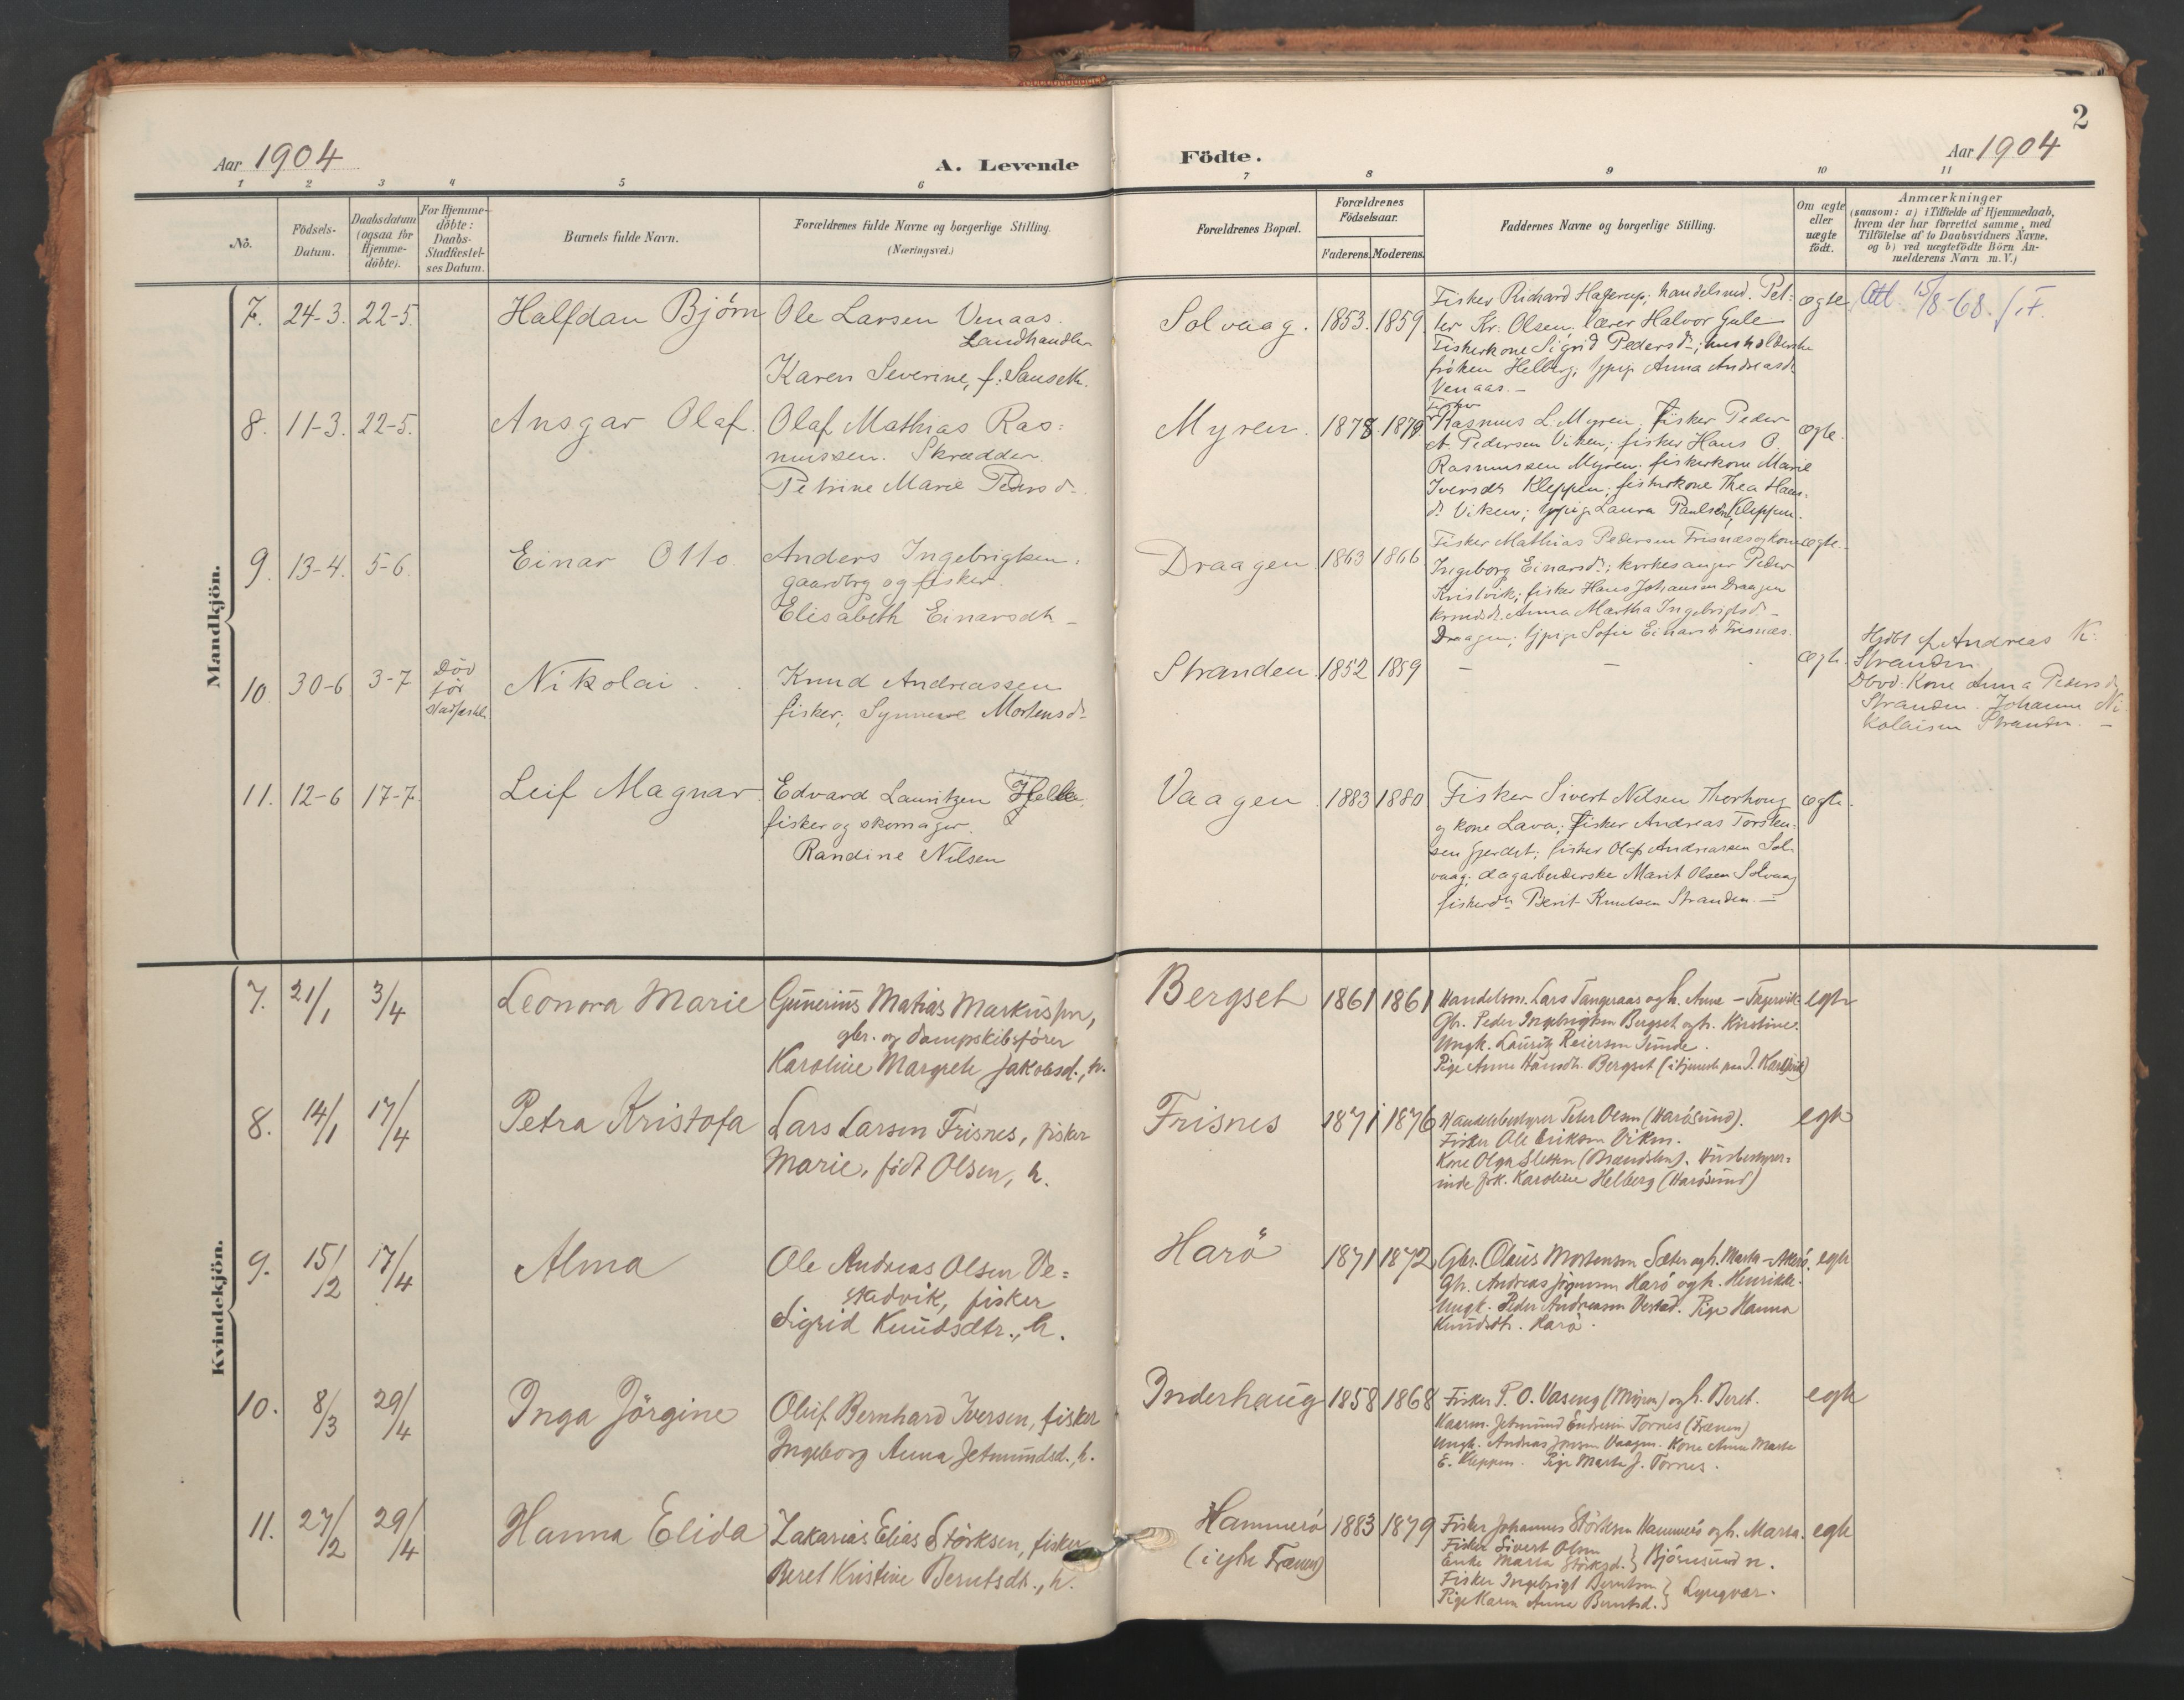 2
Aar 1904
A. Levende
Födte.
Aar 1904
1 2 3 4 5 6 7 8 9 10 11
No.
Födsels-
Datum.
Daabsdatum
(ogsaa for
Hjemme-
döbte).
For Hjemme-
döbte:
Daabs-
Stadfæstel-
ses Datum.
Barnets fulde Navn.
Forældrenes fulde Navne og borgerlige Stilling.
(Næringsvei.)
Forældrenes Bopæl.
Forældrenes
Födselsaar.
Faderens. Moderens.
Faddernes Navne og borgerlige Stilling.
Om ægte
eller
uægte
födt.
Anmærkninger
(saasom: a) i Tilfælde af Hjemmedaab,
hvem der har forrettet samme, med
Tilföielse af to Daabsvidners Navne,
og b) ved uægtefödte Börn An-
melderens Navn m. V.)
Mandkjön.
7. 24-3. 22-5.
Halfdan Bjørn
Ole Larsen Venaas.
Landhandler
Karen Severine, f.
Solvaag. 1853. 1859.
Fisker Richard Hagerup; handelsmd. Pet-
ter Kr. Olsen; lærer Halvor Gule
Fiskerkone Sigrid Pedersd.; husholderske
frøken Helberg; Anna Andreasd.
Venaas. -
ægte
Att. 15/8-68.
8. 11-3. 22-5.
Ansgar Olaf.
Olaf Mathias Ras-
mussen. Skrædder.
Petrine Marie Pedersd.
Myren. 1878. 1879
Fisker
Rasmus L. Myren, fisker Peder
A. Pedersen Viken; fisker Hans O.
Rasmussen Myren; fiskerkone Marie
Iversdt Kleppen; fiskerkone Thea Hans-
d. Viken; Laura Paulsen, Kleppen.
ægte.
9. 13-4. 5-6.
Einar Otto.
Anders Ingebrigtsen,
gaardbrg og fisker.
Elisabeth Einarsdtr -
Draagen. 1863 1866
Fisker Mathias Pedersen Frisnæs og kone
Ingeborg Einarsd.; kirkesanger Peder
Kristvik; fisker Hans Johansen Draagen
Anna Martha Ingebrigtsd. -
Draagen; Sofie Einarsd. Frisnæs.
ægte.
10. 30-6 3-7
Död
før
stadfæstels
Nikolai.
Knud Andreassen
fisker; Synneve Mortensd.
Stranden. 1852 1859
- -
ægte.
Hjdbt af Andreas K.
Stranden
Kone Anna Pedersd.
Stranden. Johann Ni-
kolaisen Stranden. -
11. 12-6 17-7.
Leif Magnar.
Edvard Lauritzen
fisker og skomager.
Randine Nilsen
Vaagen. 1883 1880
Fisker Sivert Nilsen Thorhoug
og kone Lava; fisker Andreas Torsten-
sen Gjerdet; fisker Olaf Andreassen Sol-
vaag; dagarbeiderske Marit Olsen Solvaag
fiskerd. Berit Knutsen Stranden. -
ægte.
Kvindekjön.
7. 21/1 3/4
Leonora Marie
Gunerius Matias Markussen,
gbr. og dampskibsfører
Karoline Margrete Jakobsd., h.
Bergset 1861 1861
Handelsm. Lars Tangeraas og h. Anne -
Gbr. Peder Ingebrigtsen Bergset og h. Kirstine.
Ungk. Laurits Reiersen Sunde.
Pige Anna Hansdtr. Bergset
egte
8. 14/1 17/4
Petra Kristofa
Lars Larsen Frisnes, fisker
Marie, født Olsen, h.
Frisnes 1871 1876
Handelsbestyrer Peter Olsen (Harøsund).
Fisker Ole Eriksen Viken.
Kone Olga Sletten. Husbestyrer-
inde frk. Karoline Helberg (Harøsund)
egte
9. 15/2 17/4
Alma
Ole Andreas Olsen Ve-
stadvik, fisker
Sigrid Knudsdtr., h.
Harö 1871 1872
Gbr. Olaus Mortensen Sæter og h. Marta - Akerö.
Gbr. Andreas Harö og h. Henrikke.
Ungk. Peder Andreasen Vestad. Pige Hanna
Knudsdtr. Harö.
egte
10. 8/3 29/4
Inga Jörgine
Oluf Bernhard Iversen, fisker
Ingeborg Anna Jetmundsd., h.
Inderhaug 1858 1868
Fisker P. O. Vaseng (Myren) og h. Beret.
Kaarm. Jetmund Endresen Tornes (Frænen)
Ungk. Andreas Jonsen Vaagen. Kone Anne Marte
E. Kleppen. Pige Marta J. Tornes.
egte
11. 27/2 29/4
Hanna Elida
Zakarias Elias Störksen, fisker
Beret Kristine Berntsdtr., h.
Hammerö
(i ytre Frænen)
1883 1879
Fisker Johannes Störksen Hammerö og h. Marta.
Fisker Sivert Olsen
Enke Marta Störksd. } Björnsund n.
Fisker Ingebrigt Berntsen
Pige Karen Anna Berntsd. } Lyngvær.
egte